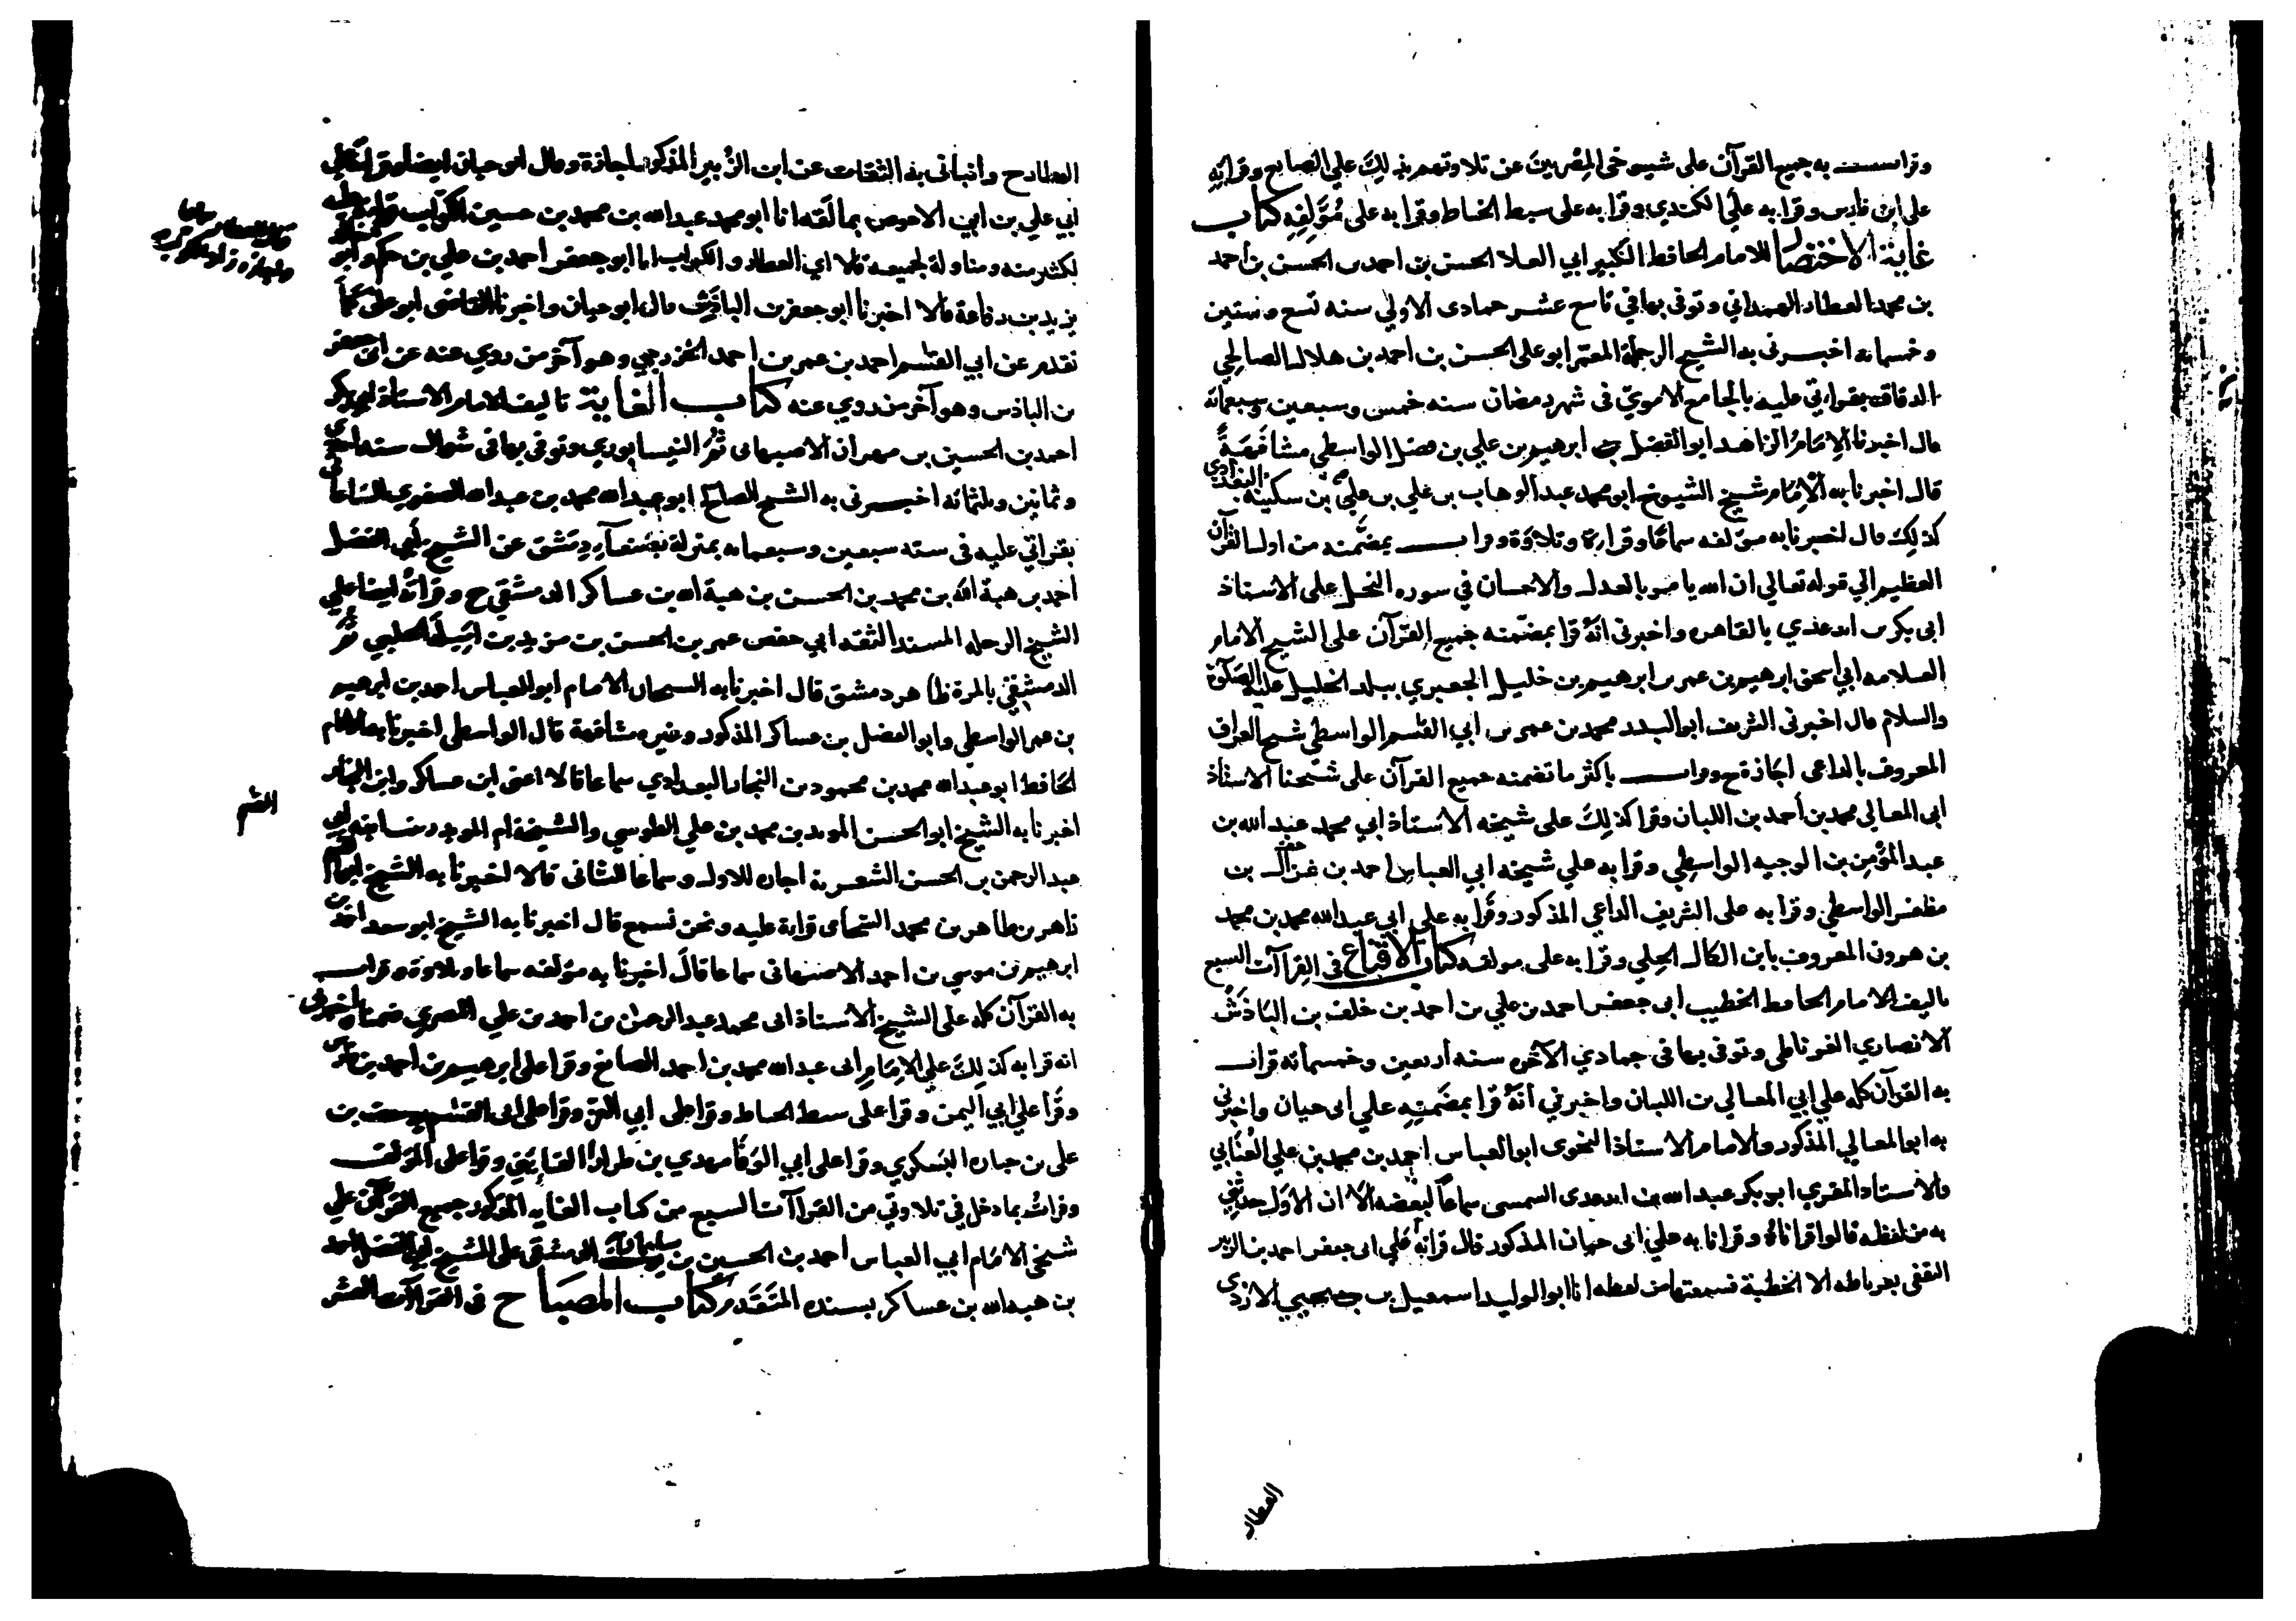 وقرات به جميع القرآن على شيوخي المصريين عن تلاوتهم بذلك على الصايغ وقرا به
على ابن فارس وقرا به على الكندي وقرا به على سبط الخياط وقرا به على مؤلفه كتاب
غاية الاختصار للامام الحافظ الكبير ابي العلا الحسن بن احمد بن الحسن بن أحمد
بن محمد العطار الهمداني وتوفي بها في تاسع عشر جمادى الاولي سنه تسع وستين
وخمسمائه اخبرني به الشيخ الرحلة المعمر ابو على الحسن بن احمد بن هلال الصالحي
الدقاق بقراتي عليه بالجامع الاموي في شهر رمضان سنه خمس وسبعين وسبعمائه
قال اخبرنا الإمام الزاهد ابو الفضل ابرهيم بن علي بن فضل الواسطي مشافهة
قال اخبرنا به الإمام شيخ الشيوخ ابو محمد عبد الوهاب بن علي بن علي بن سكينة البغدادي
كذلك قال اخبرنا به مولفه سماعا وقراءة وتلاوة وقرات بمضمنه من اول القرآن
العظيم الي قوله تعالي ان الله يامر بالعدل والاحسان في سوره النحل على الاستاذ
ابي بكر بن ايدغدي بالقاهره واخبرني انه قرا بمضمنه جميع القرآن على الشيخ الامام
العلامه ابي اسحق ابرهيم بن عمر بن ابرهيم بن خليل الجعبري ببلد الخليل عليه الصلاة
والسلام قال اخبرني الشريف ابو البدر محمد بن عمر بن ابي القسم الواسطي شيخ العراق
المعروف بالداعى اجازة ح وقرات باكثر ما تضمنه جميع القرآن على شيخنا الاستاذ
ابي المعالي محمد بن أحمد بن اللبان وقرا كذلك على شيخه الاستاذ ابي محمد عبد الله بن
عبد المؤمن بن الوجيه الواسطي وقرا به علي شيخه ابي العباس احمد بن غزال بن
مظفر الواسطي وقرا به على الشريف الداعي المذكور وقرا به على ابي عبد الله محمد بن محمد
بن هرون المعروف بابن الكال الحلي وقرا به على مولفه كتاب الاقناع في القراآت السبع
تاليف الامام الحافظ الخطيب ابي جعفر احمد بن علي بن احمد بن خلف بن الباذش
الانصاري الغرناطي وتوفي بها في جمادي الآخره سنه أربعين وخمسمائه قرات
به القرآن كله علي ابي المعالي بن اللبان واخبرني أنه قرا بمضمنه علي ابي حيان واخبرني
به ابو المعالي المذكور والامام الاستاذ النحوي ابو العباس احمد بن محمد بن علي العنابي
والاستاد المقري ابو بكر عبد الله بن ايدغدي الشمسي سماعا لبعضه الا ان الاول حدثني
به من لفظه قالوا قراناه وقرانا به علي ابي حيان المذكور قال قراته علي ابي جعفر احمد بن الزبير
الثقفي بغرناطه الا الخطبة فسمعتها من لفظه انا ابو الوليد اسمعيل بن يحيي الازدي
العطار
العطار ح وانباني به الثقات عن ابن الزبير المذكور اجازة وقال ابو حيان ايضا وقراته علي
ابي علي بن ابي الاحوص بمالقه انا ابو محمد عبد الله بن محمد بن حسين الكواب
لكثير منه ومناولة لجميعه قالا اي العطار والكواب انا ابو جعفر احمد بن علي بن حكم وابو
يزيد بن رفاعة قالا اخبرنا ابو جعفر بن الباذش قال ابو حيان واخبرنا القاضي ابو علي كما
تقدم عن ابي القسم احمد بن عمر بن احمد الخزرجي وهو آخر من روي عنه عن ابي جعفر
بن الباذش وهو آخر من روي عنه كتاب الغاية تاليف الامام الاستاذ ابي بكر
احمد بن الحسين بن مهران الاصبهاني ثم النيسابوري وتوفي بها في شوال سنه احدي
وثمانين وثلثمائه اخبرني به الشيخ الصالح ابو عبد الله محمد بن عبد الله الصفوي الساعاتي
بقراتي عليه في سنه سبعين وسبعمايه بمنزله دمشق عن الشيخ ابي الفضل
احمد بن هبة الله بن محمد بن الحسن بن هبة الله بن عساكر الدمشقي ح وقراته ايضا علي
الشيخ الرحله المسند الثقه ابي حفص عمر بن الحسن بن مزيد بن اميلة الحلبي ثم
الدمشقي بالمزة ظاهر دمشق قال اخبرنا به الشيخان الامام ابو العباس احمد بن ابرهيم
بن عمر الواسطي وابو الفضل بن عساكر المذكور وغيره مشافهة قال الواسطي اخبرنا به الامام
الحافظ ابو عبد الله محمد بن محمود بن النجار البغدادي سماعا قالا اعني ابن عساكر وابن النجار
اخبرنا به الشيخ ابو الحسن المويد بن محمد بن علي الطوسي والشيخة ام المويد زينب ابنة ابي القسم
عبد الرحمن بن الحسن الشعرية اجازة للاول وسماعا للثاني قالا اخبرنا به الشيخ ابو القسم
زاهر بن طاهر بن محمد الشحامي قراءة عليه ونحن نسمع قال اخبرنا به الشيخ ابو سعد احمد بن
ابرهيم بن موسي بن احمد الاصبهاني سماعا قال اخبرنا به مؤلفه سماعا وتلاوة وقرات
به القرآن كله على الشيخ الاستاذ ابي محمد عبد الرحمن بن احمد بن علي المصري ضمنا واخبرني
انه قرا به كذلك علي الإمام ابي عبد الله محمد بن احمد الصايغ وقرا على ابرهيم بن احمد بن فارس
وقرأ علي ابي اليمن وقرا على سبط الخياط وقرا على ابي العز وقرا على ابي القسم يوسف بن
علي بن جباره البسكري وقرا على ابي الوفا مهدي بن طرارا القايني وقرا على المؤلف
وقرات بما دخل في تلاوتي من القراآت السبع من كتاب الغايه المذكور جميع القرآن علي
شيخي الامام ابي العباس أحمد بن الحسين بن سليمان الدمشقي على الشيخ ابي الفضل احمد
بن هبة الله بن عساكر بسنده المتقدم كتاب المصباح في القراآت العشر